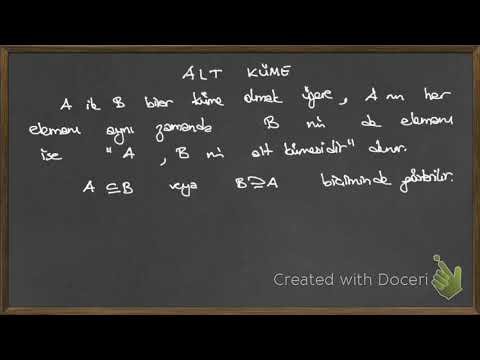 ALT KÜME
A ile B birer küme olmak üzere, A nın her
elemanı aynı zamanda B nin de elemanı
ise "A, B nin alt kümesidir" denir.
A ⊆ B veya B ⊇ A biçiminde gösterilir.
Created with Doceri